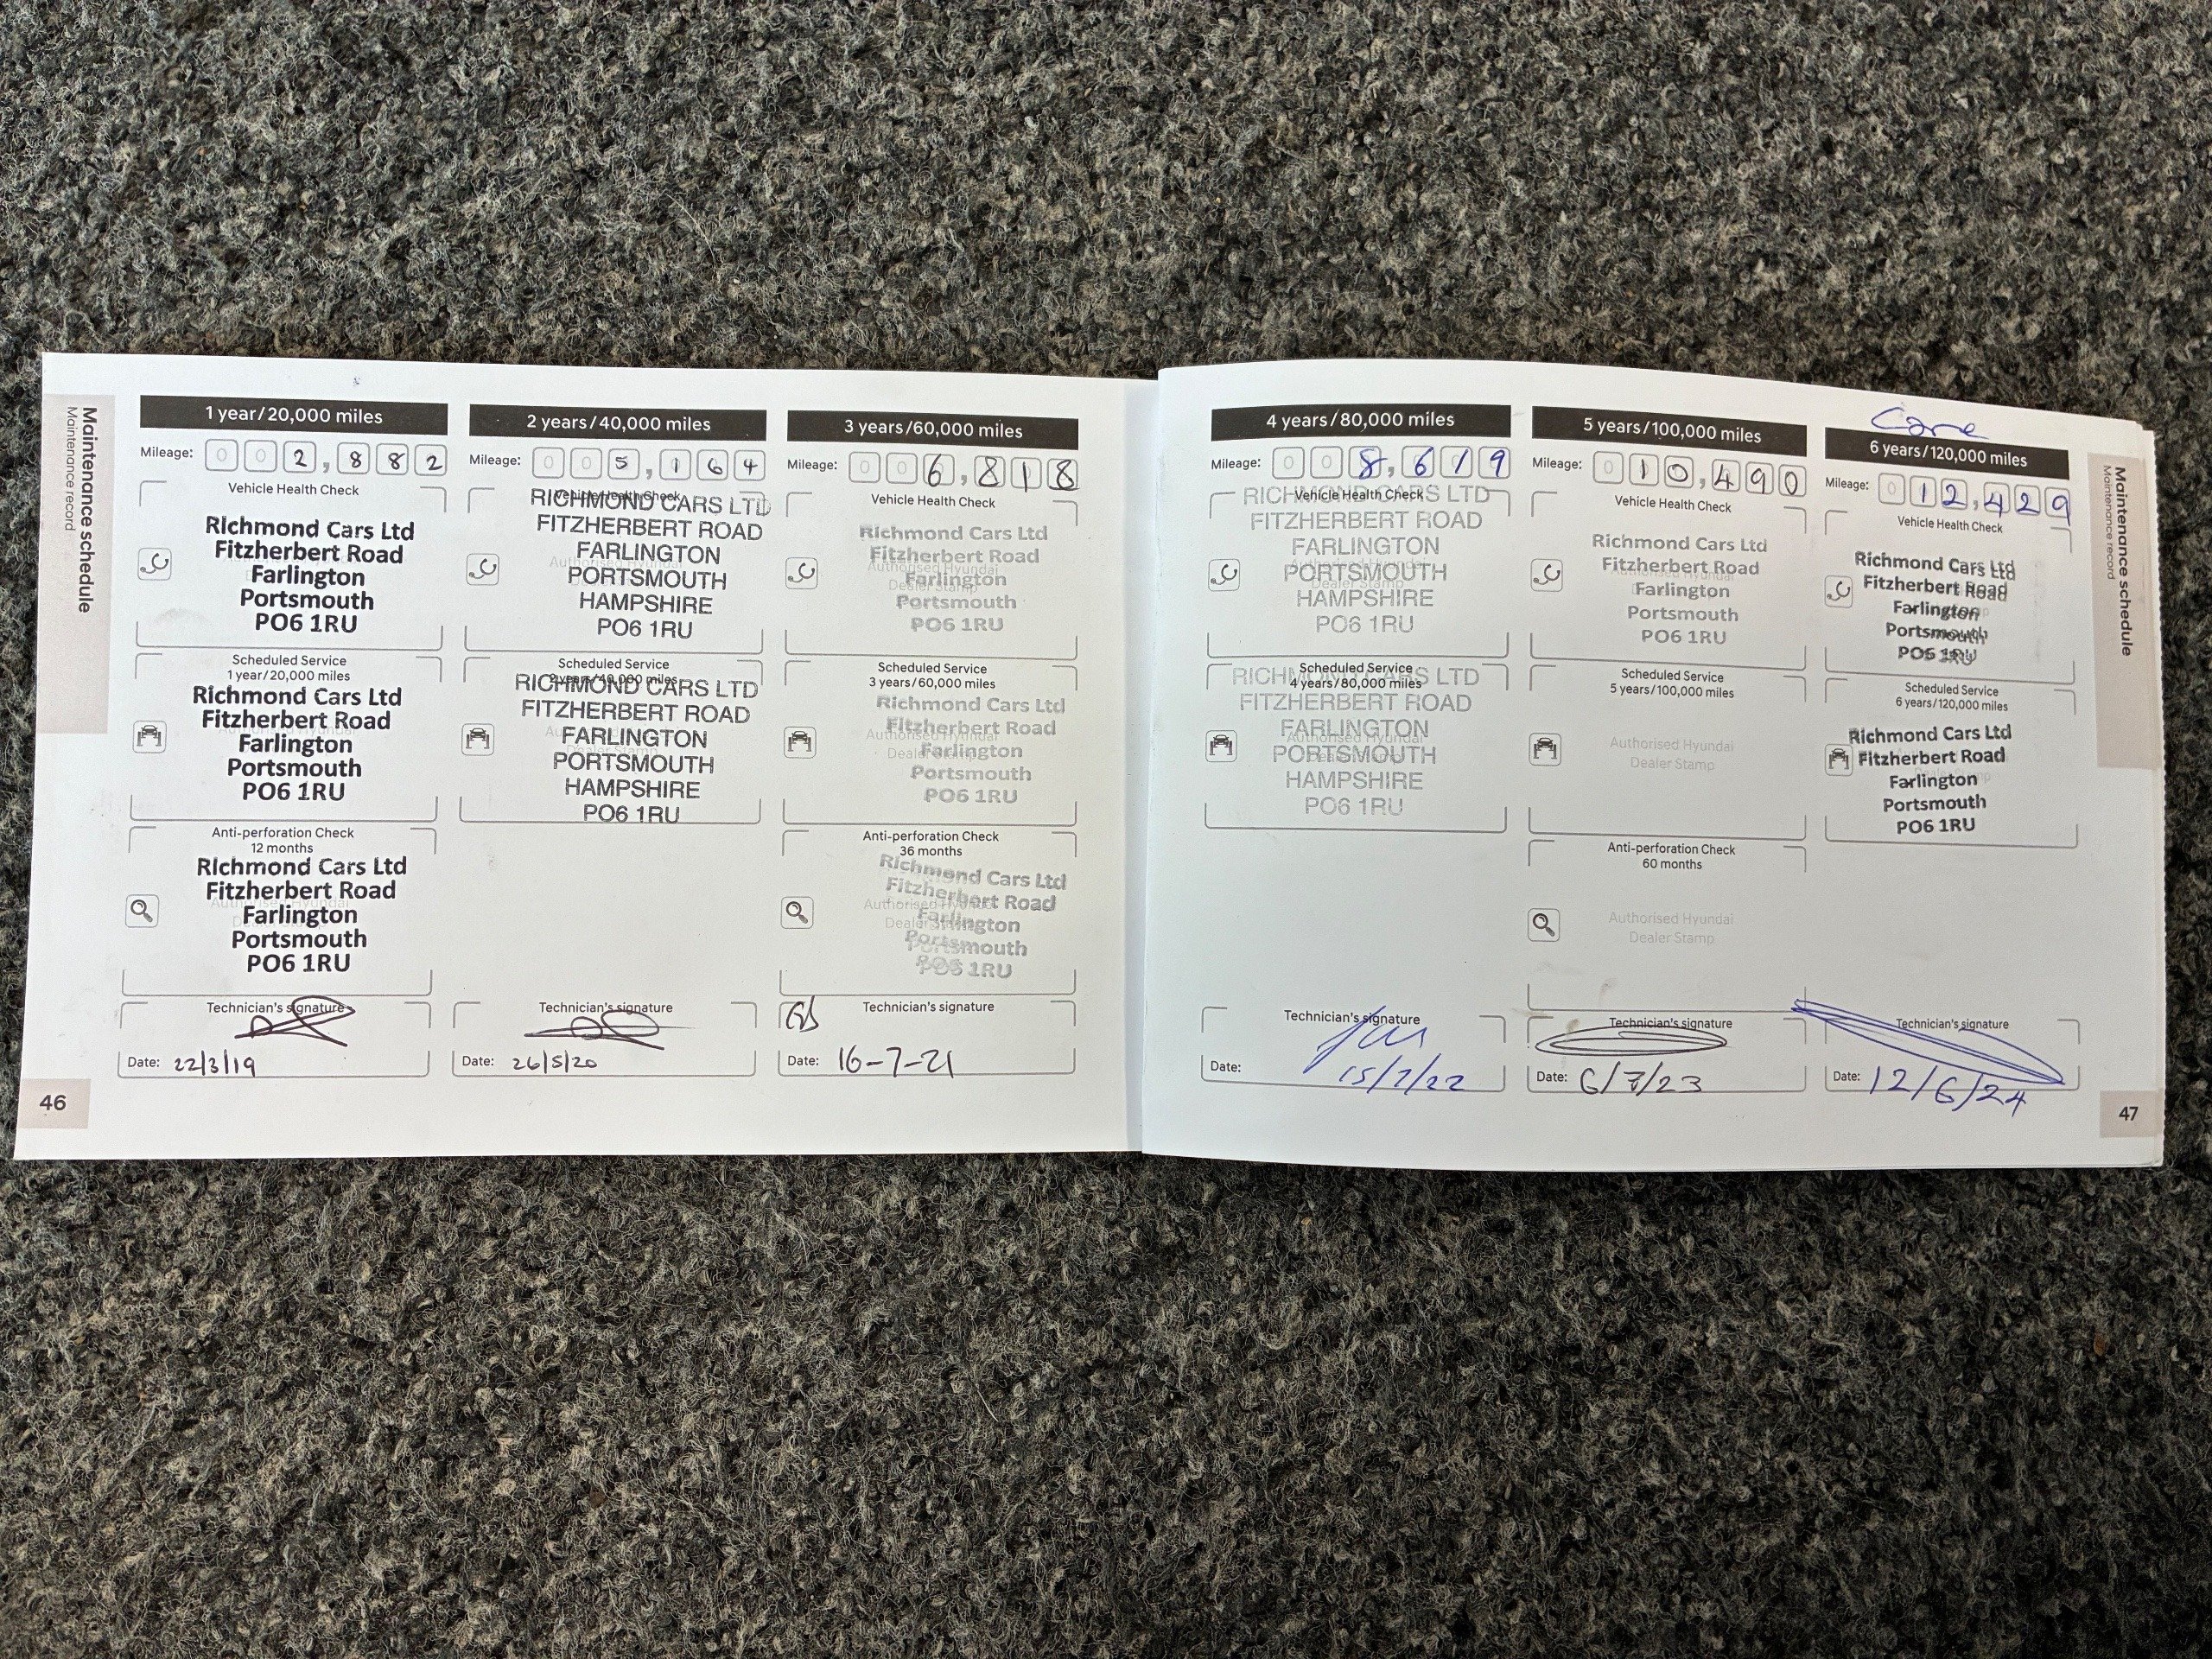 Maintenance schedule
Maintenance record
1 year/20,000 miles
Mileage: 0 0 2, 8 8 2
Vehicle Health Check
Richmond Cars Ltd
Fitzherbert Road
Farlington
Portsmouth
PO6 1RU
Scheduled Service
1 year/20,000 miles
Richmond Cars Ltd
Fitzherbert Road
Farlington
Portsmouth
PO6 1RU
Anti-perforation Check
12 months
Richmond Cars Ltd
Fitzherbert Road
Farlington
Portsmouth
PO6 1RU
Technician's signature
Date: 22/3/19
46
2 years/40,000 miles
Mileage: 0 0 5, 1 6 4
Vehicle Health Check
RICHMOND CARS LTD
FITZHERBERT ROAD
FARLINGTON
PORTSMOUTH
HAMPSHIRE
PO6 1RU
Scheduled Service
2 years/40,000 miles
RICHMOND CARS LTD
FITZHERBERT ROAD
FARLINGTON
PORTSMOUTH
HAMPSHIRE
PO6 1RU
Technician's signature
Date: 26/5/20
3 years/60,000 miles
Mileage: 0 0 6, 8 1 8
Vehicle Health Check
Richmond Cars Ltd
Fitzherbert Road
Authorised Hyundai
Farlington
Dealer Stamp
Portsmouth
PO6 1RU
Scheduled Service
3 years/60,000 miles
Richmond Cars Ltd
Fitzherbert Road
Authorised Hyundai
Farlington
Dealer Stamp
Portsmouth
PO6 1RU
Anti-perforation Check
36 months
Richmond Cars Ltd
Fitzherbert Road
Authorised Hyundai
Farlington
Dealer Stamp
Portsmouth
PO6 1RU
Technician's signature
Date: 16-7-21
4 years/80,000 miles
Mileage: 0 0 8, 6 1 9
Vehicle Health Check
RICHMOND CARS LTD
FITZHERBERT ROAD
FARLINGTON
PORTSMOUTH
Dealer Stamp
HAMPSHIRE
PO6 1RU
Scheduled Service
4 years/80,000 miles
RICHMOND CARS LTD
FITZHERBERT ROAD
FARLINGTON
Authorised Hyundai
PORTSMOUTH
Dealer Stamp
HAMPSHIRE
PO6 1RU
Technician's signature
Date: 15/7/22
5 years/100,000 miles
Mileage: 0 1 0, 4 9 0
Vehicle Health Check
Richmond Cars Ltd
Fitzherbert Road
Farlington
Portsmouth
PO6 1RU
Scheduled Service
5 years/100,000 miles
Authorised Hyundai
Dealer Stamp
Anti-perforation Check
60 months
Authorised Hyundai
Dealer Stamp
Technician's signature
Date: 6/7/23
Care
6 years/120,000 miles
Mileage: 0 1 2, 4 2 9
Vehicle Health Check
Richmond Cars Ltd
Fitzherbert Road
Farlington
Portsmouth
PO6 1RU
Scheduled Service
6 years/120,000 miles
Richmond Cars Ltd
Fitzherbert Road
Farlington
Portsmouth
PO6 1RU
Technician's signature
Date: 12/6/24
Maintenance schedule
Maintenance record
47